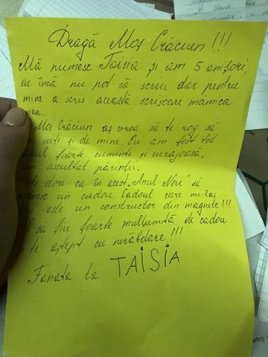 Dragă Moș Crăciun!!!
Mă numesc Taisia și am 5 anișori,
eu încă nu pot să scriu dar pentru
mine a scris această scrisoare mămica
mea.
Moș Crăciun aș vrea să te rog să
de mine. Eu am fost tot
anul foarte cuminte și curajoasă,
am ascultat părinții.
dori ca în acest "Anul Nou" să
un cadou. Cadoul care mi-l
este un constructor din magnete!!!
să fiu foarte mulțumită de cadou
te aștept cu nerăbdare!!!
la TAISIA